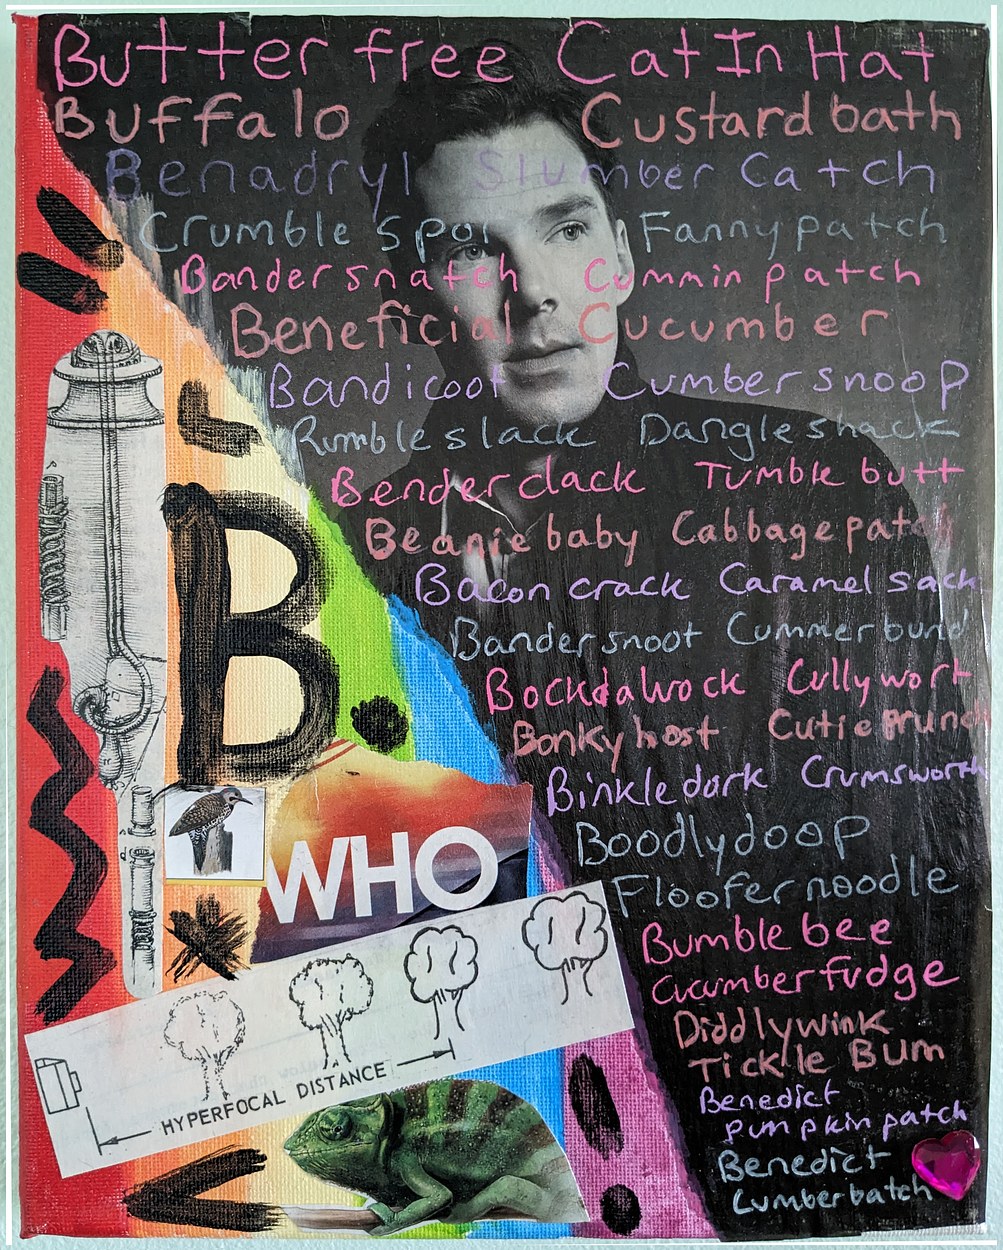 Butter free Cat In Hat
Buffalo Custard bath
Benadryl Slumber Catch
Crumble spor Fannypatch
Bandersnatch Cummin patch
Beneficial Cucumber
Bandicoot Cumbersnoop
Rumbleslack Dangleshack
Benderclack Tumble butt
Beanie baby Cabbagepatch
Bacon crack Caramel sack
Bandersnoot Cummerbund
Bockdawock Cullywort
Bonkyhost Cutie Prunch
Binkledork Crumsworth
Boodlydoop
Floofernoodle
Bumble bee
Cucumberfudge
Diddlywink
Tickle Bum
Benedict
pumpkin patch
Benedict
Cumberbatch
B.
WHO
HYPERFOCAL DISTANCE